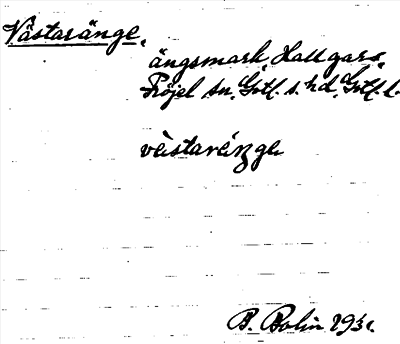 Västaränge,
ängsmark, Hallgårds,
Fröjel sn. Gotl. s. hd. Gotl. l.
vèstaréŋge
B. Bolin 1931.